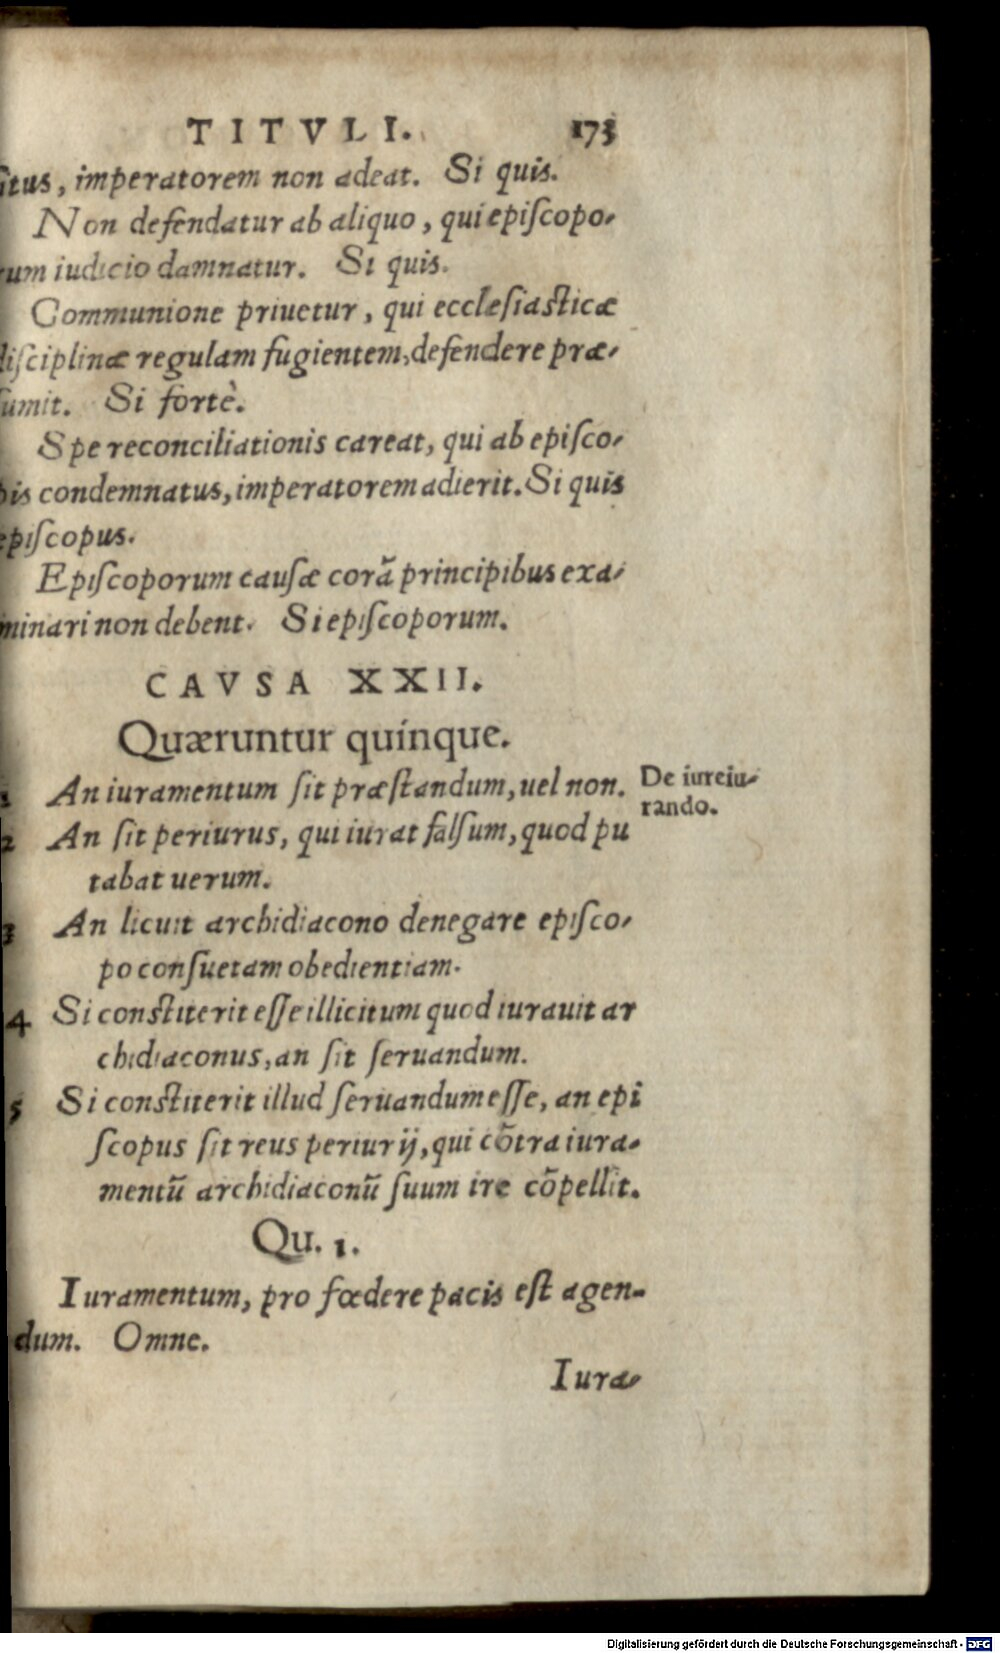 TITVLI. 173
situs, imperatorem non adeat. Si quis.
Non defendatur ab aliquo, qui episcopo-
rum iudicio damnatur. Si quis.
Communione priuetur, qui ecclesiasticæ
disciplinæ regulam fugientem, defendere præ-
sumit. Si fortè.
Spe reconciliationis careat, qui ab episco-
pis condemnatus, imperatorem adierit. Si quis
episcopus.
Episcoporum causæ corã principibus exa-
minari non debent. Si episcoporum.
CAVSA XXII.
Quæruntur quinque.
1 An iuramentum sit præstandum, uel non. De iureiu-
rando.
2 An sit periurus, qui iurat falsum, quod pu
tabat uerum.
3 An licuit archidiacono denegare episco-
po consuetam obedientiam.
4 Si constiterit esse illicitum quod iurauit ar
chidiaconus, an sit seruandum.
5 Si constiterit illud seruandum esse, an epi
scopus sit reus periurij, qui cõtra iura-
mentũ archidiaconũ suum ire cõpellit.
Qu. 1.
Iuramentum, pro fœdere pacis est agen-
dum. Omne.
Iura-
Digitalisierung gefördert durch die Deutsche Forschungsgemeinschaft - DFG